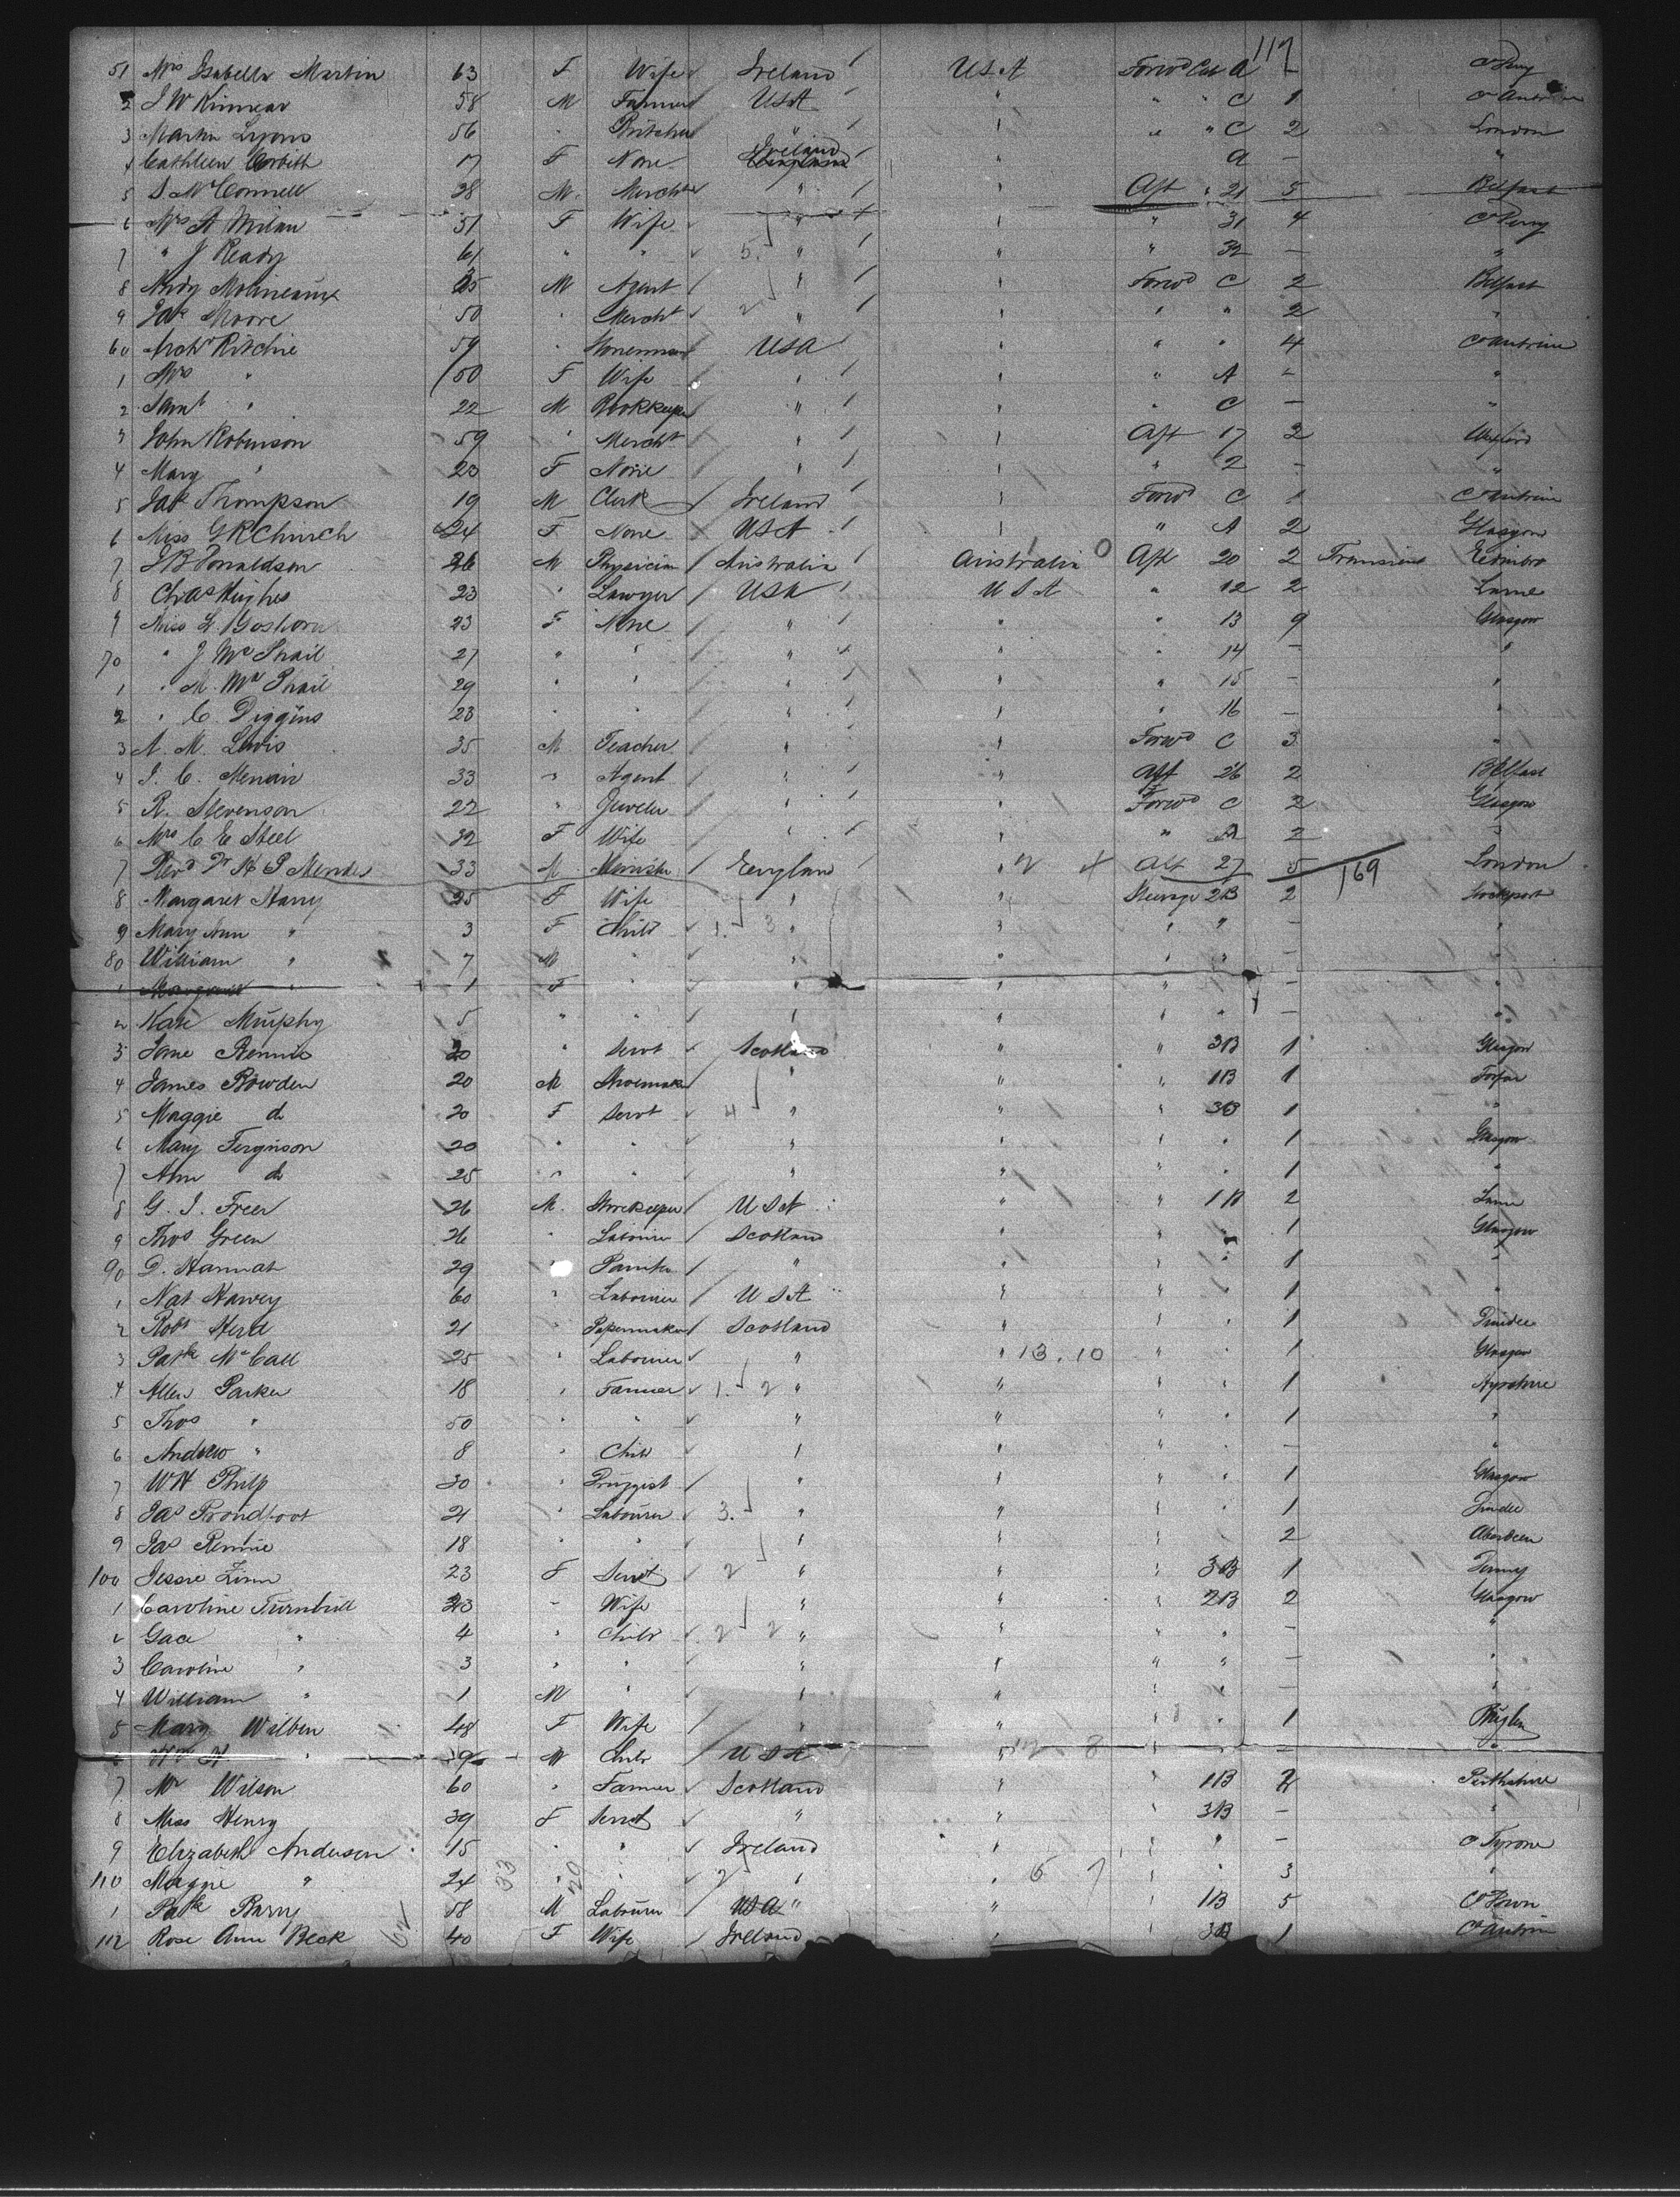 117
51 Mrs Isabella Martin 63 F Wife Ireland USA Forwd Cab A – Co Derry
2 J W Kinnear 58 M Farmer USA " " " C 1 Co Antrim
3 Martin Lyons 56 " Butcher " " " " C 2 London
4 Cathleen Corbitt 17 F None Ireland " A – "
5 S McConnell 28 M Mercht " " Aft " 21 5 Belfast
6 Mrs A Milan 51 F Wife " " " 31 4 Co Derry
7 " J Ready 61 " " " " " 32 – "
8 Andy Molineaux M Agent " " Forwd C 2 Belfast
9 Jas Moore 50 " Mercht " " " " 2 "
60 Archd Ritchie 59 " USA " " " 4 Co Antrim
1 Mrs " 50 F Wife " " " A – "
2 Saml " 22 M Bookkeeper " " " C – "
3 John Robinson 59 " Mercht " " Aft 17 2
4 Mary " 23 F None " " " 2 – "
5 Jas Thompson 19 M Clerk Ireland " Forwd C 1 Co Antrim
6 Miss G R Church 24 F None USA " " A 2 Glasgow
7 J B Donaldson 26 M Physician Australia Australia 0 Aft 20 2 Transient Edinbro
8 Chas Hughes 23 " Lawyer USA USA " 12 2 Larne
9 Miss L. Goshorn 23 F None " " " 13 9 Glasgow
70 " J Mc Phail 27 " " " " " 14 – "
1 " M. Mc Phail 29 " " " " " 15 – "
2 " C. Diggins 23 " " " " " 16 – "
3 A. M. Lewis 35 M Teacher " " Forwd C 3 "
4 J. C. Menair 33 " Agent " " Aft 26 2 Belfast
5 R. Stevenson 22 " Jeweler " " Forwd C 2 Glasgow
6 Mrs C E Steel 32 F Wife " " " A 2 "
7 Revd Dr H P Mendes 33 M Minister England " 2 4 Aft 27 5 169 London
8 Margaret Harry 25 F Wife " " Steerage 2B 2 Stockport
9 Mary Ann " 3 F Child 1. 3 " " " " – "
80 William " 7 M " " " " " – "
1 " 1 F " " " " –
2 Kate Murphy 5 " " " " " " – "
3 Jane Rennie 20 " Servt Scotland " " 3B 1 Glasgow
4 James Bowden 20 M Shoemaker " " " 1B 1 Forfar
5 Maggie do 20 F Servt 4 " " " 3B 1 "
6 Mary Ferguson 20 " " " " " " 1 Glasgow
7 Ann do 25 " " " " " " 1 "
8 G. J. Freer 26 M. Storekeeper USA " " 1B 2
9 Thos Green 26 " Labourer Scotland " " " 1 Glasgow
90 D. Hannah 29 Painter " " " " 1 "
1 Nat Harvey 60 " Labourer USA " " " 1 "
2 Robt Herd 21 " Papermaker Scotland " " " 1 Dundee
3 Patk McCall 25 " Labourer " " 13.10 " " 1 Glasgow
4 Allen Parker 18 " Farmer 1. 2 " " " " 1 Ayrshire
5 Thos " 50 " " " " " " 1 "
6 Andrew " 8 " Child " " " " – "
7 W H Philp 30 " Druggist " " " " 1 Glasgow
8 Jas Proudfoot 21 " Labourer 3. " " " " 1 Dundee
9 Jas Rennie 18 " " " " " " 2 Aberdeen
100 Jessie Zinn 23 F Servt 2 " " " 3B 1 Denny
1 Caroline Turnbull " Wife " " " 2B 2 Glasgow
2 Gace " 4 " Child 2 2 " " " " – "
3 Caroline " 3 " " " " " " – "
4 William " 1 M " " " " " – "
5 Mary Wilben 48 F Wife " " " " 1
6 " 9 M Child USA " 12. 8 " " – "
7 Mr Wilson 60 " Farmer Scotland " " 1B 2 Perthshire
8 Miss Henry 39 F Servt " " " 3B – "
9 Elizabeth Anderson 15 " " Ireland " " " – Co Tyrone
110 Maggie " 24 33 " 20 " 2 " " 5 7 " " 3 "
1 Patk Barry 58 M Labourer USA " " " 1B 5 Co Down
112 Rose Ann Beck 62 40 F Wife Ireland " " 3B 1 Co Antrim